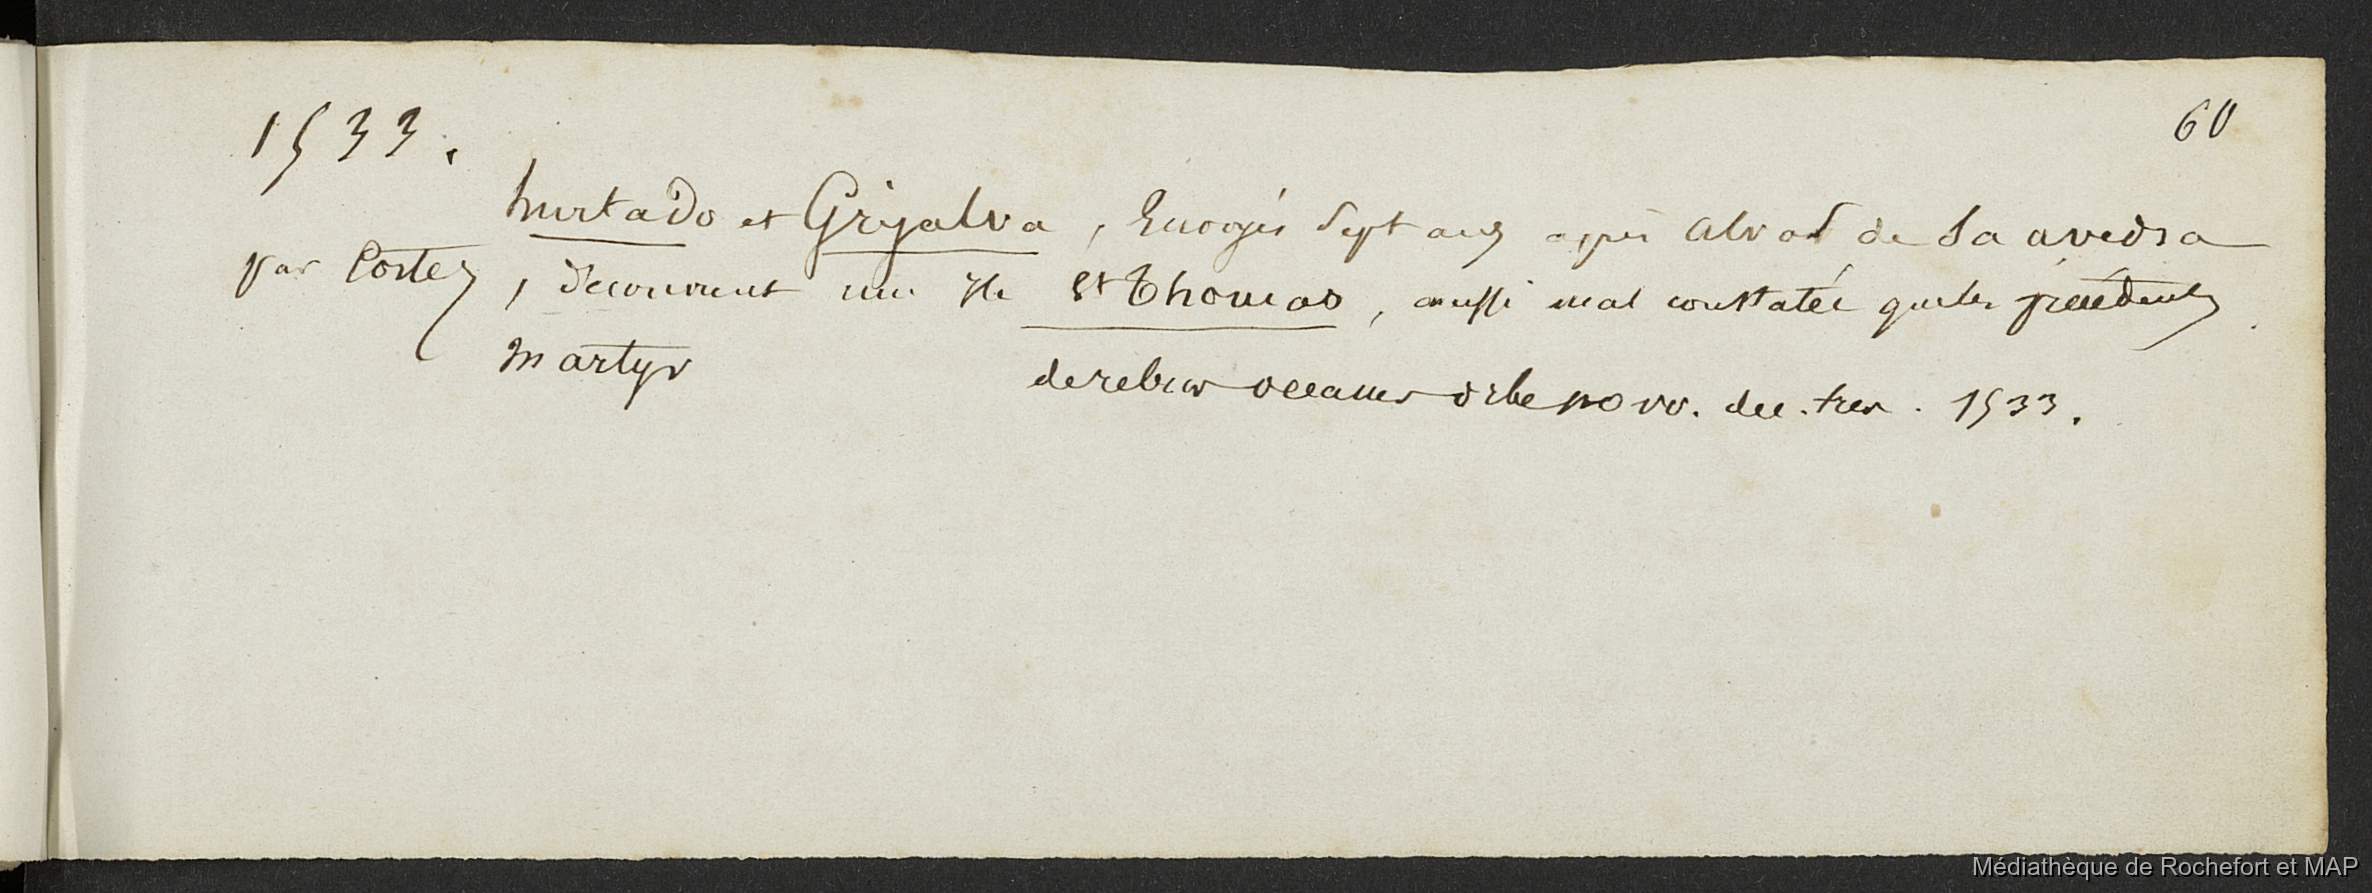 1533.
60
hurtado et Gryalva, Envoyés Sept ans après Alvar de Saavedra
par Cortez, decouvrent une Ile St Thomas, aussi mal constatée que les précédentes
Martyr de rebus oceanis orbe novo. dec. tres. 1533.
Médiathèque de Rochefort et MAP